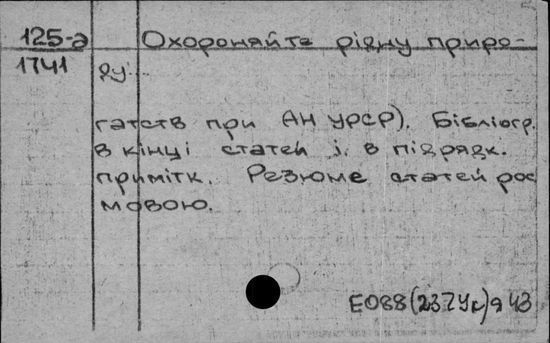 125-д Охороняйте рідну приро-
1741 ду...
гатств при АН УРСР). Бібліогр.
в кінці статей і в підрядк.
примітк. Резюме статей рос
мовою.
Е088(237Ук)я43